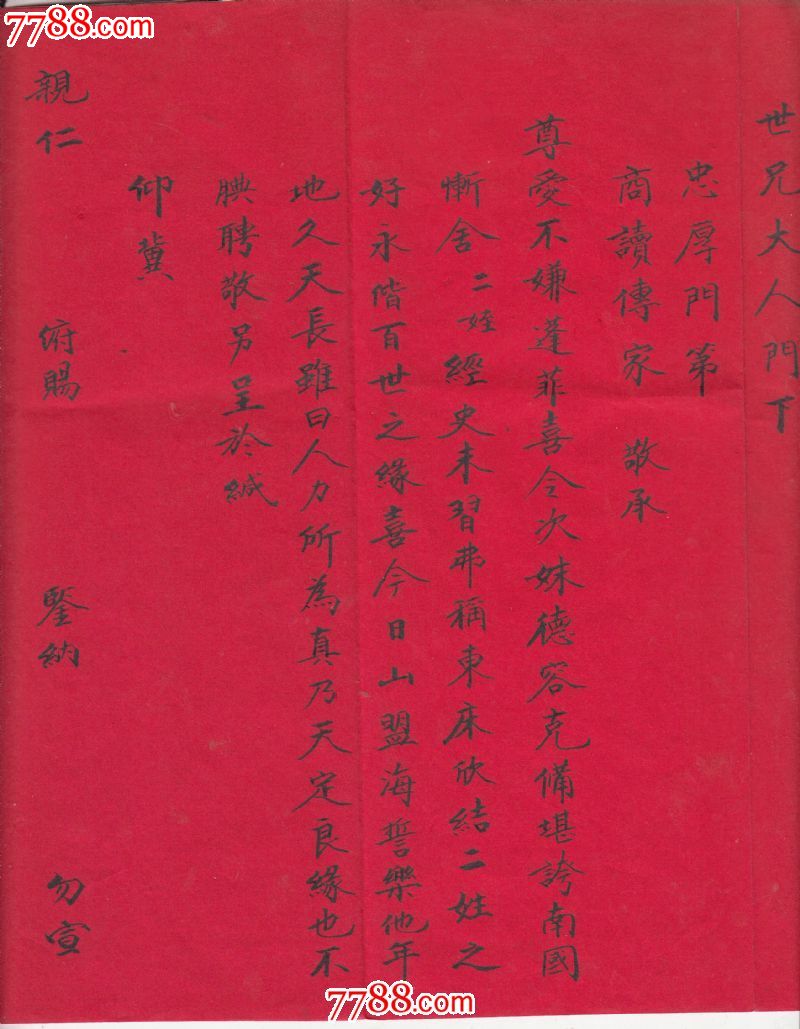 7788.com
7788.com
世兄大人門下
忠厚門第
商讀傳家 敬承
尊愛不嫌蓬菲喜令次妹德容克備堪誇南國
慚舍二姪經史未習弗稱東床欣結二姓之
好永偕百世之緣喜今日山盟海誓樂他年
地久天長雖曰人力所為真乃天定良緣也不
腆聘敬另呈於緘
仰冀
親仁 俯賜 鋻納 勿宣
7788.com